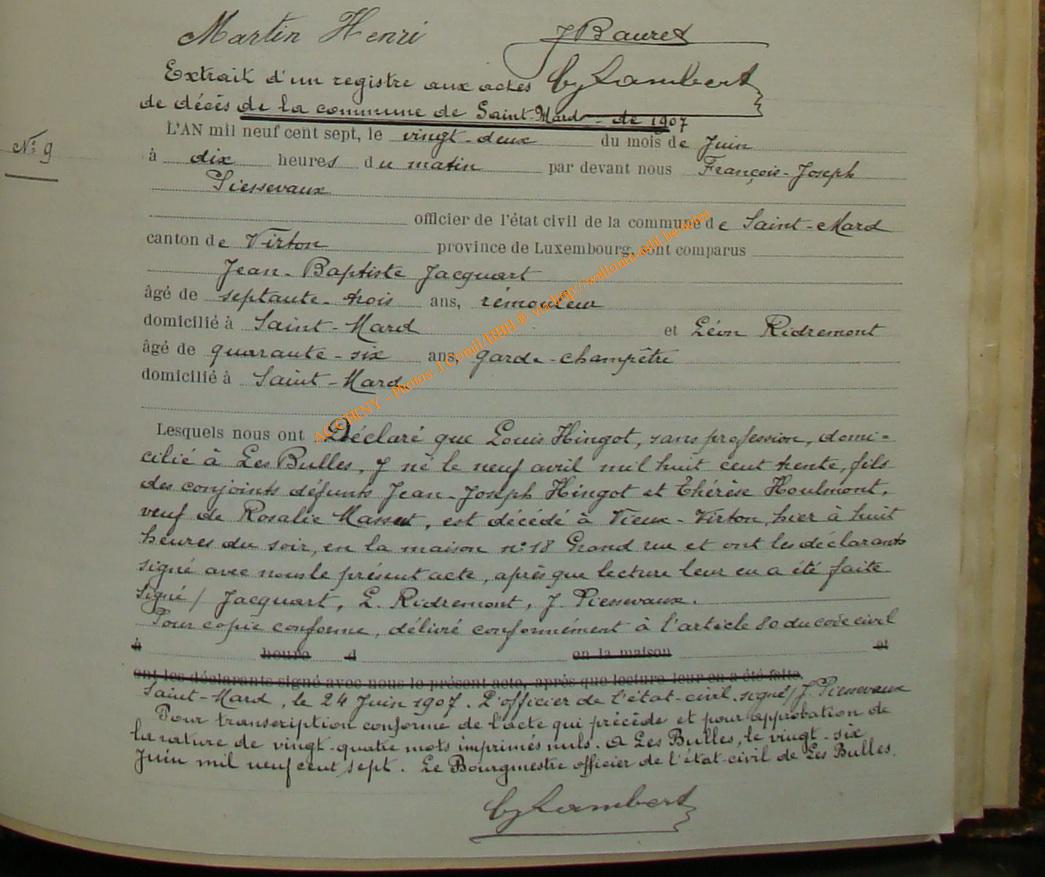 Martin Henri J Bauret
Extrait d'un registre aux actes Lambert
de décès de la commune de Saint-Mard - de 1907
N° 9
L'AN mil neuf cent sept, le vingt-deux du mois de Juin
à dix heures du matin par devant nous François-Joseph
Piessevaux
officier de l'état civil de la commune de Saint-Mard
canton de Virton province de Luxembourg, sont comparus
Jean-Baptiste Jacquart
âgé de septante-trois ans, rémouleur
domicilié à Saint-Mard et Léon Ridremont
âgé de quarante-six ans, garde-champêtre
domicilié à Saint-Mard
Lesquels nous ont Déclaré que Louis Hingot, sans profession, domi=
cilié à Les Bulles, y né le neuf avril mil huit cent trente, fils
des conjoints défunts Jean-Joseph Hingot et Thérèse Houlmont,
veuf de Rosalie Massut, est décédé à Vieux-Virton, hier à huit
heures du soir, en la maison n° 18 Grand rue et ont les déclarants
signé avec nous le présent acte, après que lecture leur en a été faite
Signé / Jacquart, L. Ridremont, J. Piessevaux.
Pour copie conforme, délivré conformément à l'article 80 du code civil
à heure d en la maison et
ont les déclarants signé avec nous le présent acte, après que lecture leur en a été faite
Saint-Mard, le 24 Juin 1907. L'officier de l'état-civil. signé / J. Piessevaux
Pour transcription conforme de l'acte qui précède et pour approbation de
la rature de vingt-quatre mots imprimés nuls. A Les Bulles, le vingt-six
Juin mil neuf cent sept. Le Bourgmestre officier de l'état-civil de Les Bulles.
Lambert